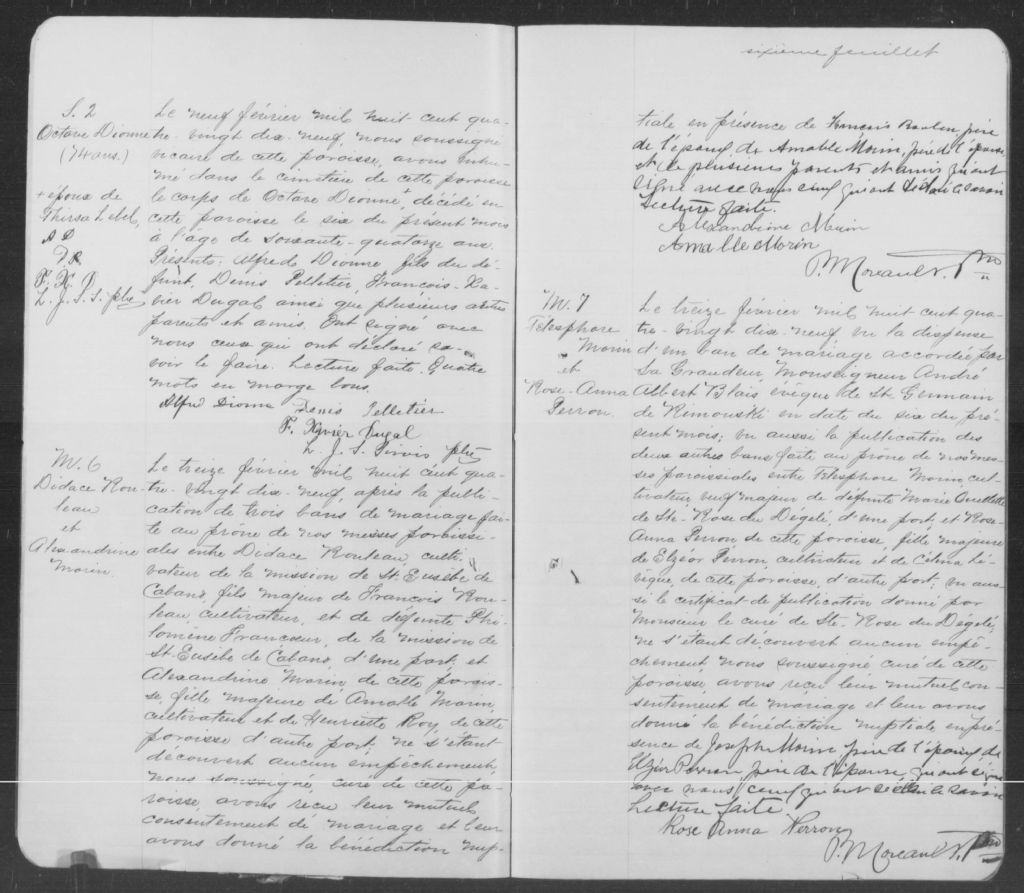 S. 2
Octave Dionne
(74 ans.)
+ époux de
Thirsa Lebel,
A D
D. P.
F. X. D
L. J. S. S. ptre
Le neuf février mil huit cent qua-
tre-vingt dix-neuf, nous soussigné
vicaire de cette paroisse, avons inhu-
mé dans le cimetière de cette paroisse
le corps de Octave Dionne, + décédé en
cette paroisse le six du présent mois
à l'âge de soixante-quatorze ans.
Présents: Alfred Dionne fils du dé-
funt, Denis Pelletier, François-Xa-
vier Dugal ainsi que plusieurs autres
parents et amis. Ont signé avec
nous ceux qui ont déclaré sa-
voir le faire. Lecture faite. Quatre
mots en marge bons.
Alfred Dionne Denis Pelletier
F. Xavier Dugal
L. J. S. ptre
M. 6
Didace Rou-
leau
et
Alexandrine
Morin.
Le treize février mil huit cent qua-
tre-vingt dix-neuf, après la publi-
cation de trois bans de mariage fai-
te au prône de nos messes paroissi-
ales entre Didace Rouleau culti-
vateur de la mission de St. Eusèbe de
Cabano, fils majeur de François Rou-
leau, cultivateur, et de défunte Phi-
lomène Francoeur, de la mission de
St. Eusèbe de Cabano, d'une part; et
Alexandrine Morin de cette parois-
se, fille majeure de Amable Morin,
cultivateur et de Henriette Roy, de cette
paroisse d'autre part; ne s'étant
découvert aucun empêchement,
nous soussigné, curé de cette pa-
roisse, avons reçu leur mutuel
consentement de mariage et leur
avons donné la bénédiction nup-
sixième feuillet
tiale en présence de François Rouleau, père
de l'époux, de Amable Morin, père de l'épouse
et de plusieurs parents et amis qui ont
signé avec nous ceux qui ont déclaré le savoir
Lecture faite.
Alexandrine Morin
Amable Morin
P. Moreault. Ptre
M. 7
Télesphore
Morin
et
Rose-Anna
Perron.
Le treize février mil huit cent qua-
tre-vingt dix-neuf vu la dispense
d'un ban de mariage accordée par
Sa Grandeur Monseigneur André
Albert Blais, évêque de St. Germain
de Rimouski en date du six du pré-
sent mois; vu aussi la publication des
deux autres bans faite au prône de nos mes-
ses paroissiales entre Télesphore Morin, cul-
tivateur veuf majeur de défunte Marie Ouellette
de Ste. Rose du Dégelé, d'une part, et Rose-
Anna Perron de cette paroisse, fille majeure
de Elzéar Perron, cultivateur et de Célina Lé-
vèque, de cette paroisse, d'autre part; vu aus-
si le certificat de publication donné par
Monsieur le curé de Ste. Rose du Dégelé;
ne s'étant découvert aucun empê-
chement, nous soussigné curé de cette
paroisse, avons reçu leur mutuel con-
sentement de mariage et leur avons
donné la bénédiction nuptiale en pré-
sence de Joseph Morin, père de l'époux, de
Elzéar Perron, père de l'épouse, qui ont signé
avec nous ceux qui ont déclaré le savoir
Lecture faite.
Rose Anna Perron
P. Moreault. Ptre